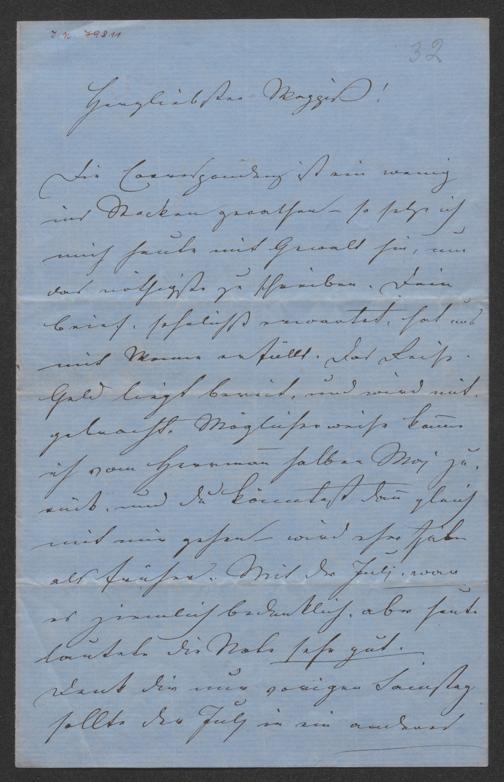 J. N. 79811
32
Herzliebster Maxgis!
Die Correspondenz ist ein wenig
ins Stocken gerathen – so setze ich
mich heute mit Gewalt hin, um
das nöthigste zu schreiben. Dein
Brief, sehnlichst erwartet, hat uns
mit Wonne erfüllt. Das Reise-
Geld liegt bereit, und wird mit-
gebracht. Möglicherweise komme
ich vom Herrman halben Mai zu-
rück, und du könntest dann gleich
mit mir gehen – wird eher
als früher. Mit der July war
es ziemlich bedenklich, aber heute
lautete die Note sehr gut.
Denk dir nur vorigen Samstag
sollte der July in ein anderes